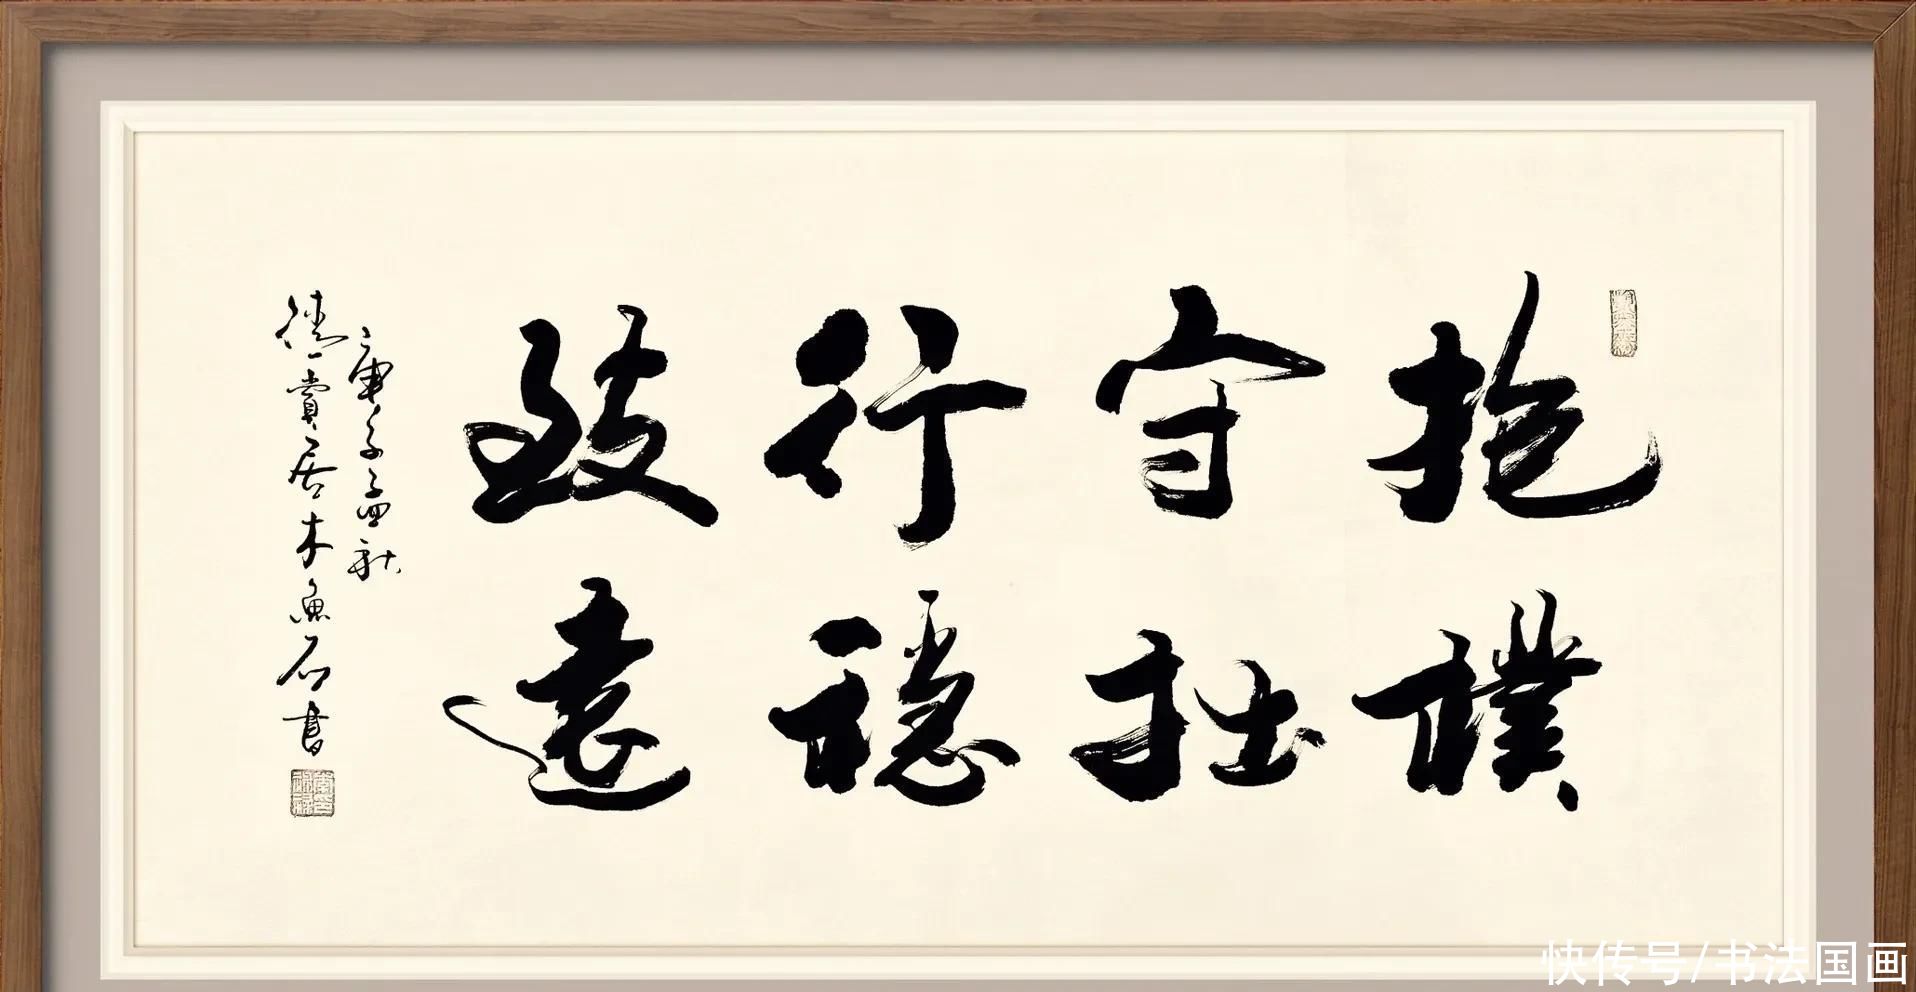 抱樸
守拙
行穩
致遠
庚子孟秋
德賞居木魚石書
快传号/书法国画